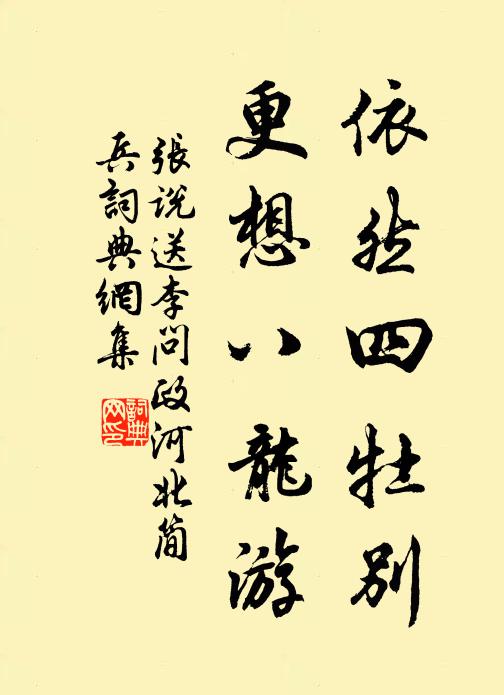 依然四牡别
更想八龍游
張说送李问政河北简
兵詞典網集
詞典
网印